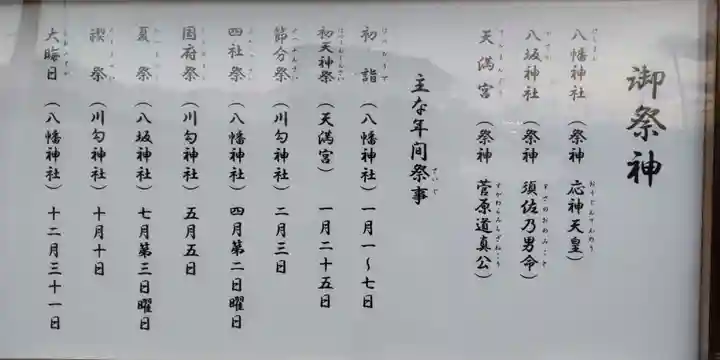 御祭神
八幡神社（祭神 応神天皇）
八坂神社（祭神 須佐乃男命）
天満宮（祭神 菅原道真公）
主な年間祭事
初詣（八幡神社）一月一〜七日
初天神祭（天満宮）一月二十五日
節分祭（川勾神社）二月三日
四社祭（八幡神社）四月第二日曜日
国府祭（川勾神社）五月五日
夏祭（八坂神社）七月第三日曜日
禊祭（川勾神社）十月十日
大晦日（八幡神社）十二月三十一日